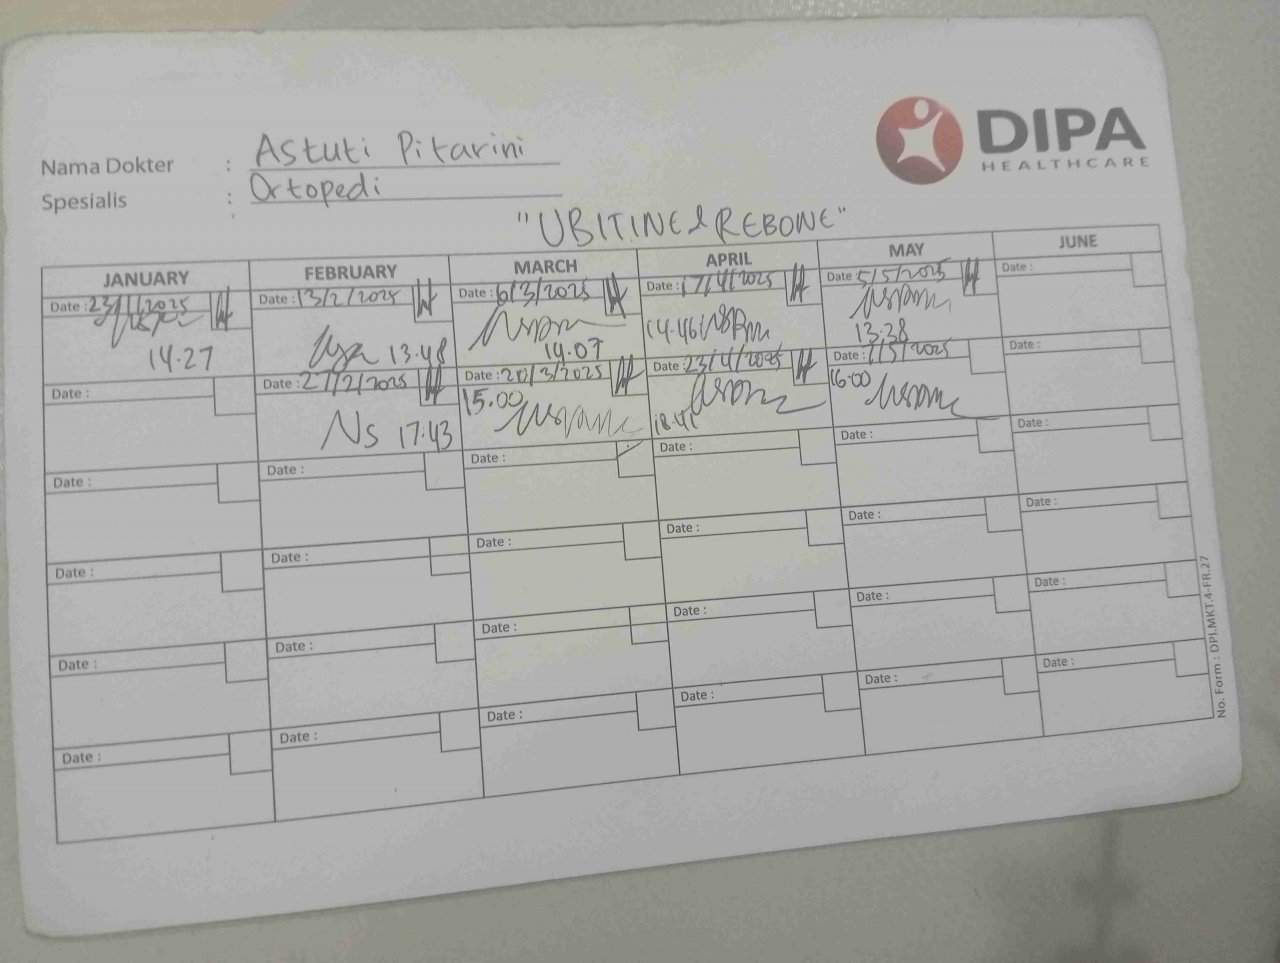 DIPA
HEALTHCARE
Nama Dokter : Astuti Pitarini
Spesialis : Ortopedi
"UBITINE & REBONE"
JANUARY FEBRUARY MARCH APRIL MAY JUNE
Date : 23/1/2025 Date : 13/2/2025 Date : 6/3/2025 Date : 17/4/2025 Date : 5/5/2025 Date :
14.27 13.48 14.07 14.46 13.38
Date : Date : 27/2/2025 Date : 20/3/2025 Date : 23/4/2025 Date : 7/5/2025 Date :
Ns 17.43 15.00 18.41 16.00
Date : Date : Date : Date : Date : Date :
Date : Date : Date : Date : Date : Date :
Date : Date : Date : Date : Date : Date :
Date : Date : Date : Date : Date : Date :
No. Form : DPI.MKT.4-FR.27